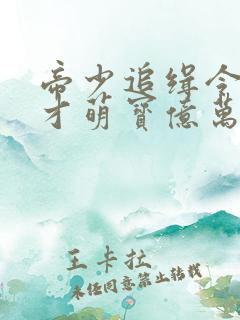 帝少追缉令
才萌寶億萬
王卡拉
未经同意禁止转载